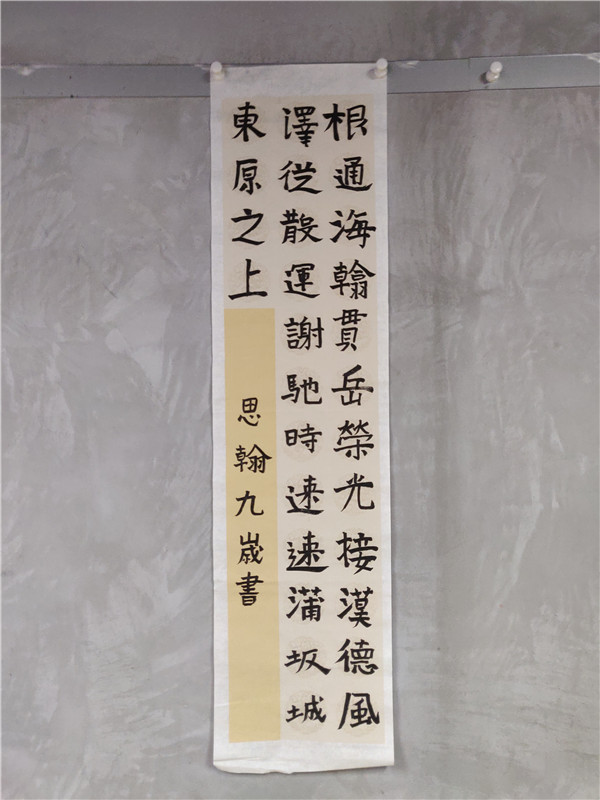 根通海翰貫岳榮光接漠德風
澤從散運謝馳時速速蒲坂城
東原之上
思翰九歲書